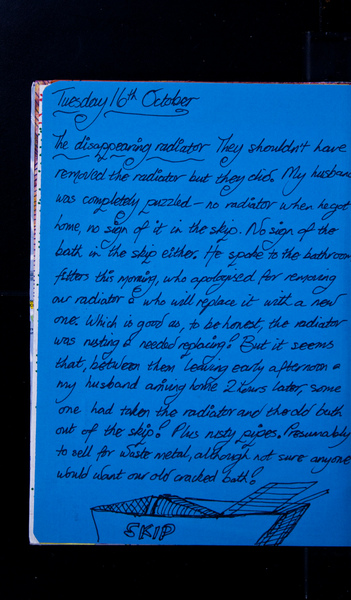 Tuesday 16th October
The disappearing radiator They shouldn't have
removed the radiator but they did. My husband
was completely puzzled - no radiator when he got
home, no sign of it in the skip. No sign of the
bath in the skip either. He spoke to the bathroom
fitters this morning, who apologised for removing
our radiator & who will replace it with a new
one. Which is good as, to be honest, the radiator
was rusting & needed replacing! But it seems
that, between them leaving early afternoon &
my husband arriving home 2 hours later, some
one had taken the radiator and the old bath
out of the skip! Plus rusty pipes. Presumably
to sell for waste metal, although not sure anyone
would want our old cracked bath!
SKIP